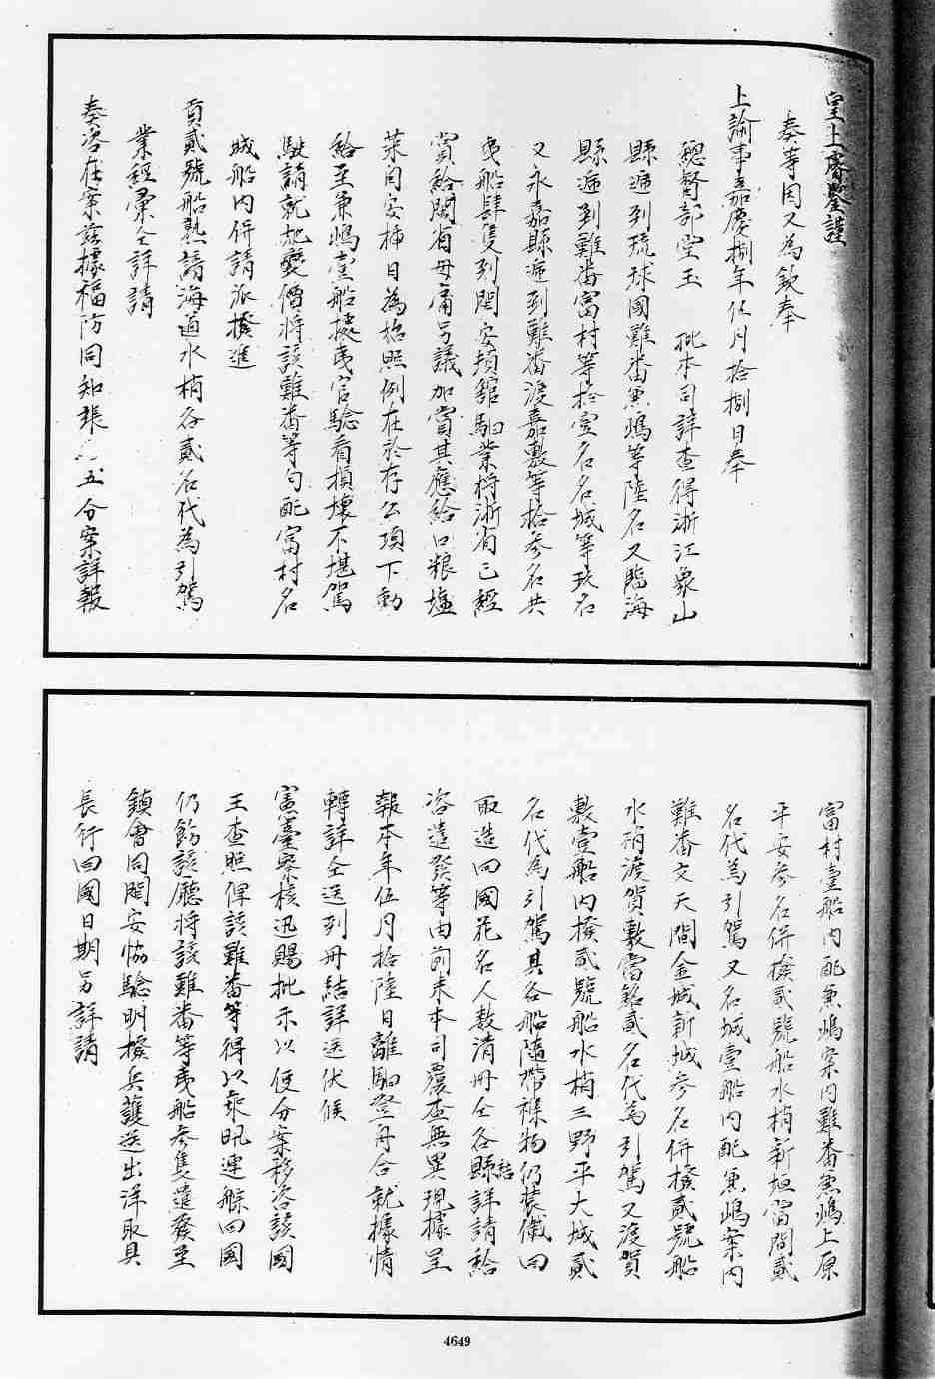 皇上睿鑒謹
奏等因又為欽奉
上諭事嘉慶捌年伍月拾捌日奉
總督部堂玉　批本司詳查得浙江象山
縣遞到琉球國難番兼嶋等陸名又臨海
縣遞到難番富村等拾壹名名城等玖名
又永嘉縣遞到難番渡嘉敷等拾參名共
夷船肆隻到閩安頓館馹業將浙省已經
賞給閩省毋庸另議加賞其應給口粮塩
菜同安挿日為始照例在於存公項下動
給至兼嶋壹船據夷官驗看損壞不堪駕
駛請就地變價將該難番等勻配富村名
城船內併請派撥進
貢貳號船熟諳海道水梢各貳名代為引駕
業經彙仝詳請
奏咨在案茲據福防同知張 五分案詳報
富村壹船內配兼嶋案內難番兼嶋上原
平安參名併撥貳號船水梢新垣當間貳
名代為引駕又名城壹船內配兼嶋案內
難番文天間金城新城參名併撥貳號船
水梢渡賀敷當銘貳名代為引駕又渡賀
敷壹船內撥貳號船水梢三野平大城貳
名代為引駕其各船隨帶祿物仍裝儎回
取造回國花名人数清冊仝各縣結詳請給
咨遣發等由前來本司覆查無異現據呈
報本年伍月拾陸日離馹登舟合就據情
轉詳仝送到冊結詳送伏候
憲臺察核迅賜批示以便分案移咨該國
王查照俾該難番等得以乘汛連䑸回國
仍飭該廳將該難番等夷船參隻遣發至
鎮會同閩安協驗明撥兵護送出洋取具
長行回國日期另詳請
4649